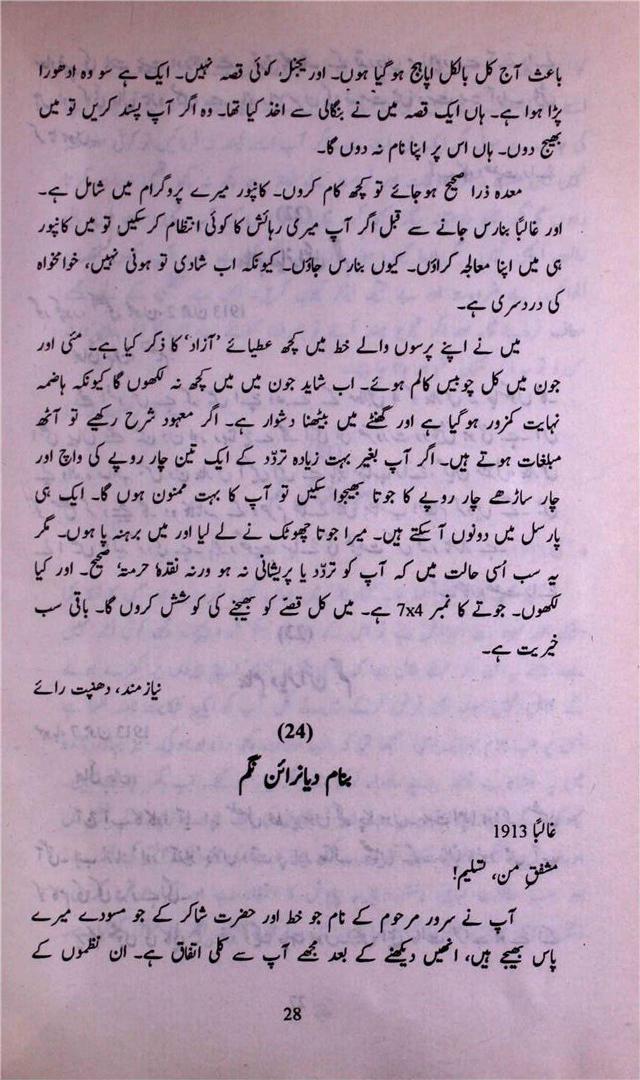 باعث آج کل بالکل اپاہج ہوگیا ہوں۔ اوریجنل کوئی قصہ نہیں۔ ایک ہے سو وہ ادھورا
پڑا ہوا ہے۔ ہاں ایک قصہ میں نے بنگالی سے اخذ کیا تھا۔ وہ اگر آپ پسند کریں تو میں
بھیج دوں۔ ہاں اس پر اپنا نام نہ دوں گا۔
معدہ ذرا صحیح ہوجائے تو کچھ کام کروں۔ کانپور میرے پروگرام میں شامل ہے۔
اور غالبًا بنارس جانے سے قبل اگر آپ میری رہائش کا کوئی انتظام کرسکیں تو میں کانپور
ہی میں اپنا معالجہ کراؤں۔ کیوں بنارس جاؤں۔ کیونکہ اب شادی تو ہونی نہیں، خوامخواہ
کی دردسری ہے۔
میں نے اپنے پرسوں والے خط میں کچھ عطیائے ’آزاد‘ کا ذکر کیا ہے۔ مئی اور
جون میں کل چوبیس کالم ہوئے۔ اب شاید جون میں میں کچھ نہ لکھوں گا کیونکہ ہاضمہ
نہایت کمزور ہوگیا ہے اور گھنٹے میں بیٹھنا دشوار ہے۔ اگر معہود شرح رکھیے تو آٹھ
مبلغات ہوتے ہیں۔ اگر آپ بغیر بہت زیادہ تردّد کے ایک تین چار روپے کی واچ اور
چار ساڑھے چار روپے کا جوتا بھیجوا سکیں تو آپ کا بہت ممنون ہوں گا۔ ایک ہی
پارسل میں دونوں آسکتے ہیں۔ میرا جوتا چھوٹک نے لے لیا اور میں برہنہ پا ہوں۔ مگر
یہ سب اُسی حالت میں کہ آپ کو تردّد یا پریشانی نہ ہو ورنہ نقدہٗ حرمتہٗ صحیح۔ اور کیا
لکھوں۔ جوتے کا نمبر 7x4 ہے۔ میں کل قصّے کو بھیجنے کی کوشش کروں گا۔ باقی سب
خیریت ہے۔
نیازمند، دھنپت رائے
(24)
بنام دیانرائن نگم
غالبًا 1913
مشفقِ من، تسلیم!
آپ نے سرور مرحوم کے نام جو خط اور حضرت شاکر کے جو مسودے میرے
پاس بھیجے ہیں، انھیں دیکھنے کے بعد مجھے آپ سے کلی اتفاق ہے۔ ان نظموں کے
28